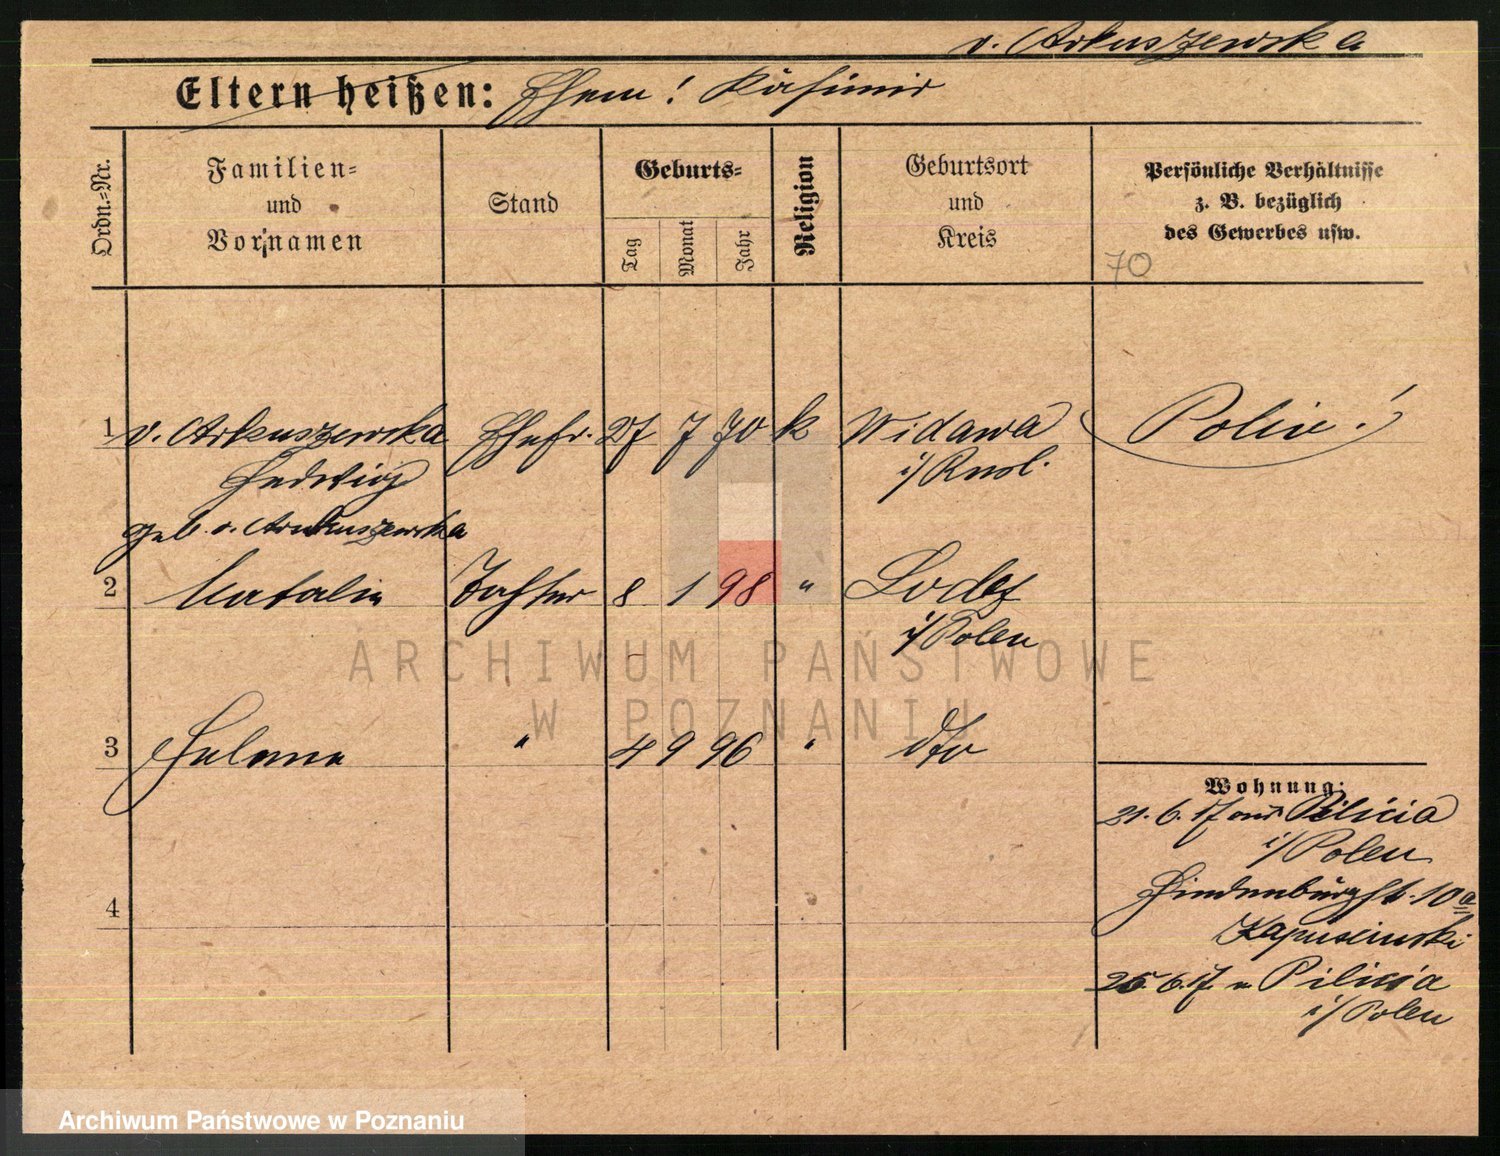 v. Arkuszewska
Eltern heißen: Ehem! Kasimir
Ordn.-Nr.
Familien-
und
Vornamen
Stand
Geburts-
Tag
Monat
Jahr
Religion
Geburtsort
und
Kreis
Persönliche Verhältnisse
z. B. bezüglich
des Gewerbes usw.
70
1 v. Arkuszewska Ehefr. 27 7 70 k Widawa Polin!
Hedwig i/Rusl.
geb. v. Arukuszewska
2 Natalie Tochter 8 1 98 " Lodz
i/Polen
ARCHIWUM PAŃSTWOWE
W POZNANIU
3 Helena " 4 9 96 " dto
Wohnung:
21. 6. 17 aus Pilicia
i/Polen
4 Hindenburgst. 10a
Kapuscinski
25. 6. 17. n Pilicia
i/Polen
Archiwum Państwowe w Poznaniu